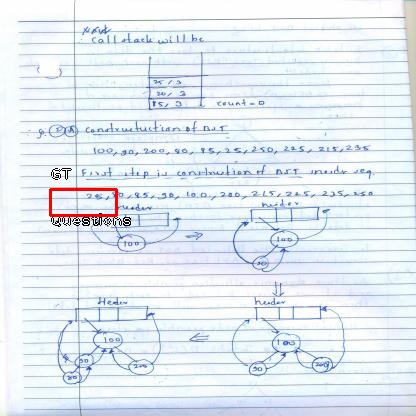 call stack will be
25, 3
20, 3
85, 3 count=0
Q. 2 A Constructuction of BST
100, 90, 200, 80, 85, 25, 250, 225, 215, 235
GT
First step is construction of BST inorder seq.
25, 80, 85, 90, 100, 200, 215, 225, 235, 250
Questions
header header
100 ⇒ 100
90
⇓
Header header
100 ⇐ 100
90 200 90 200
80